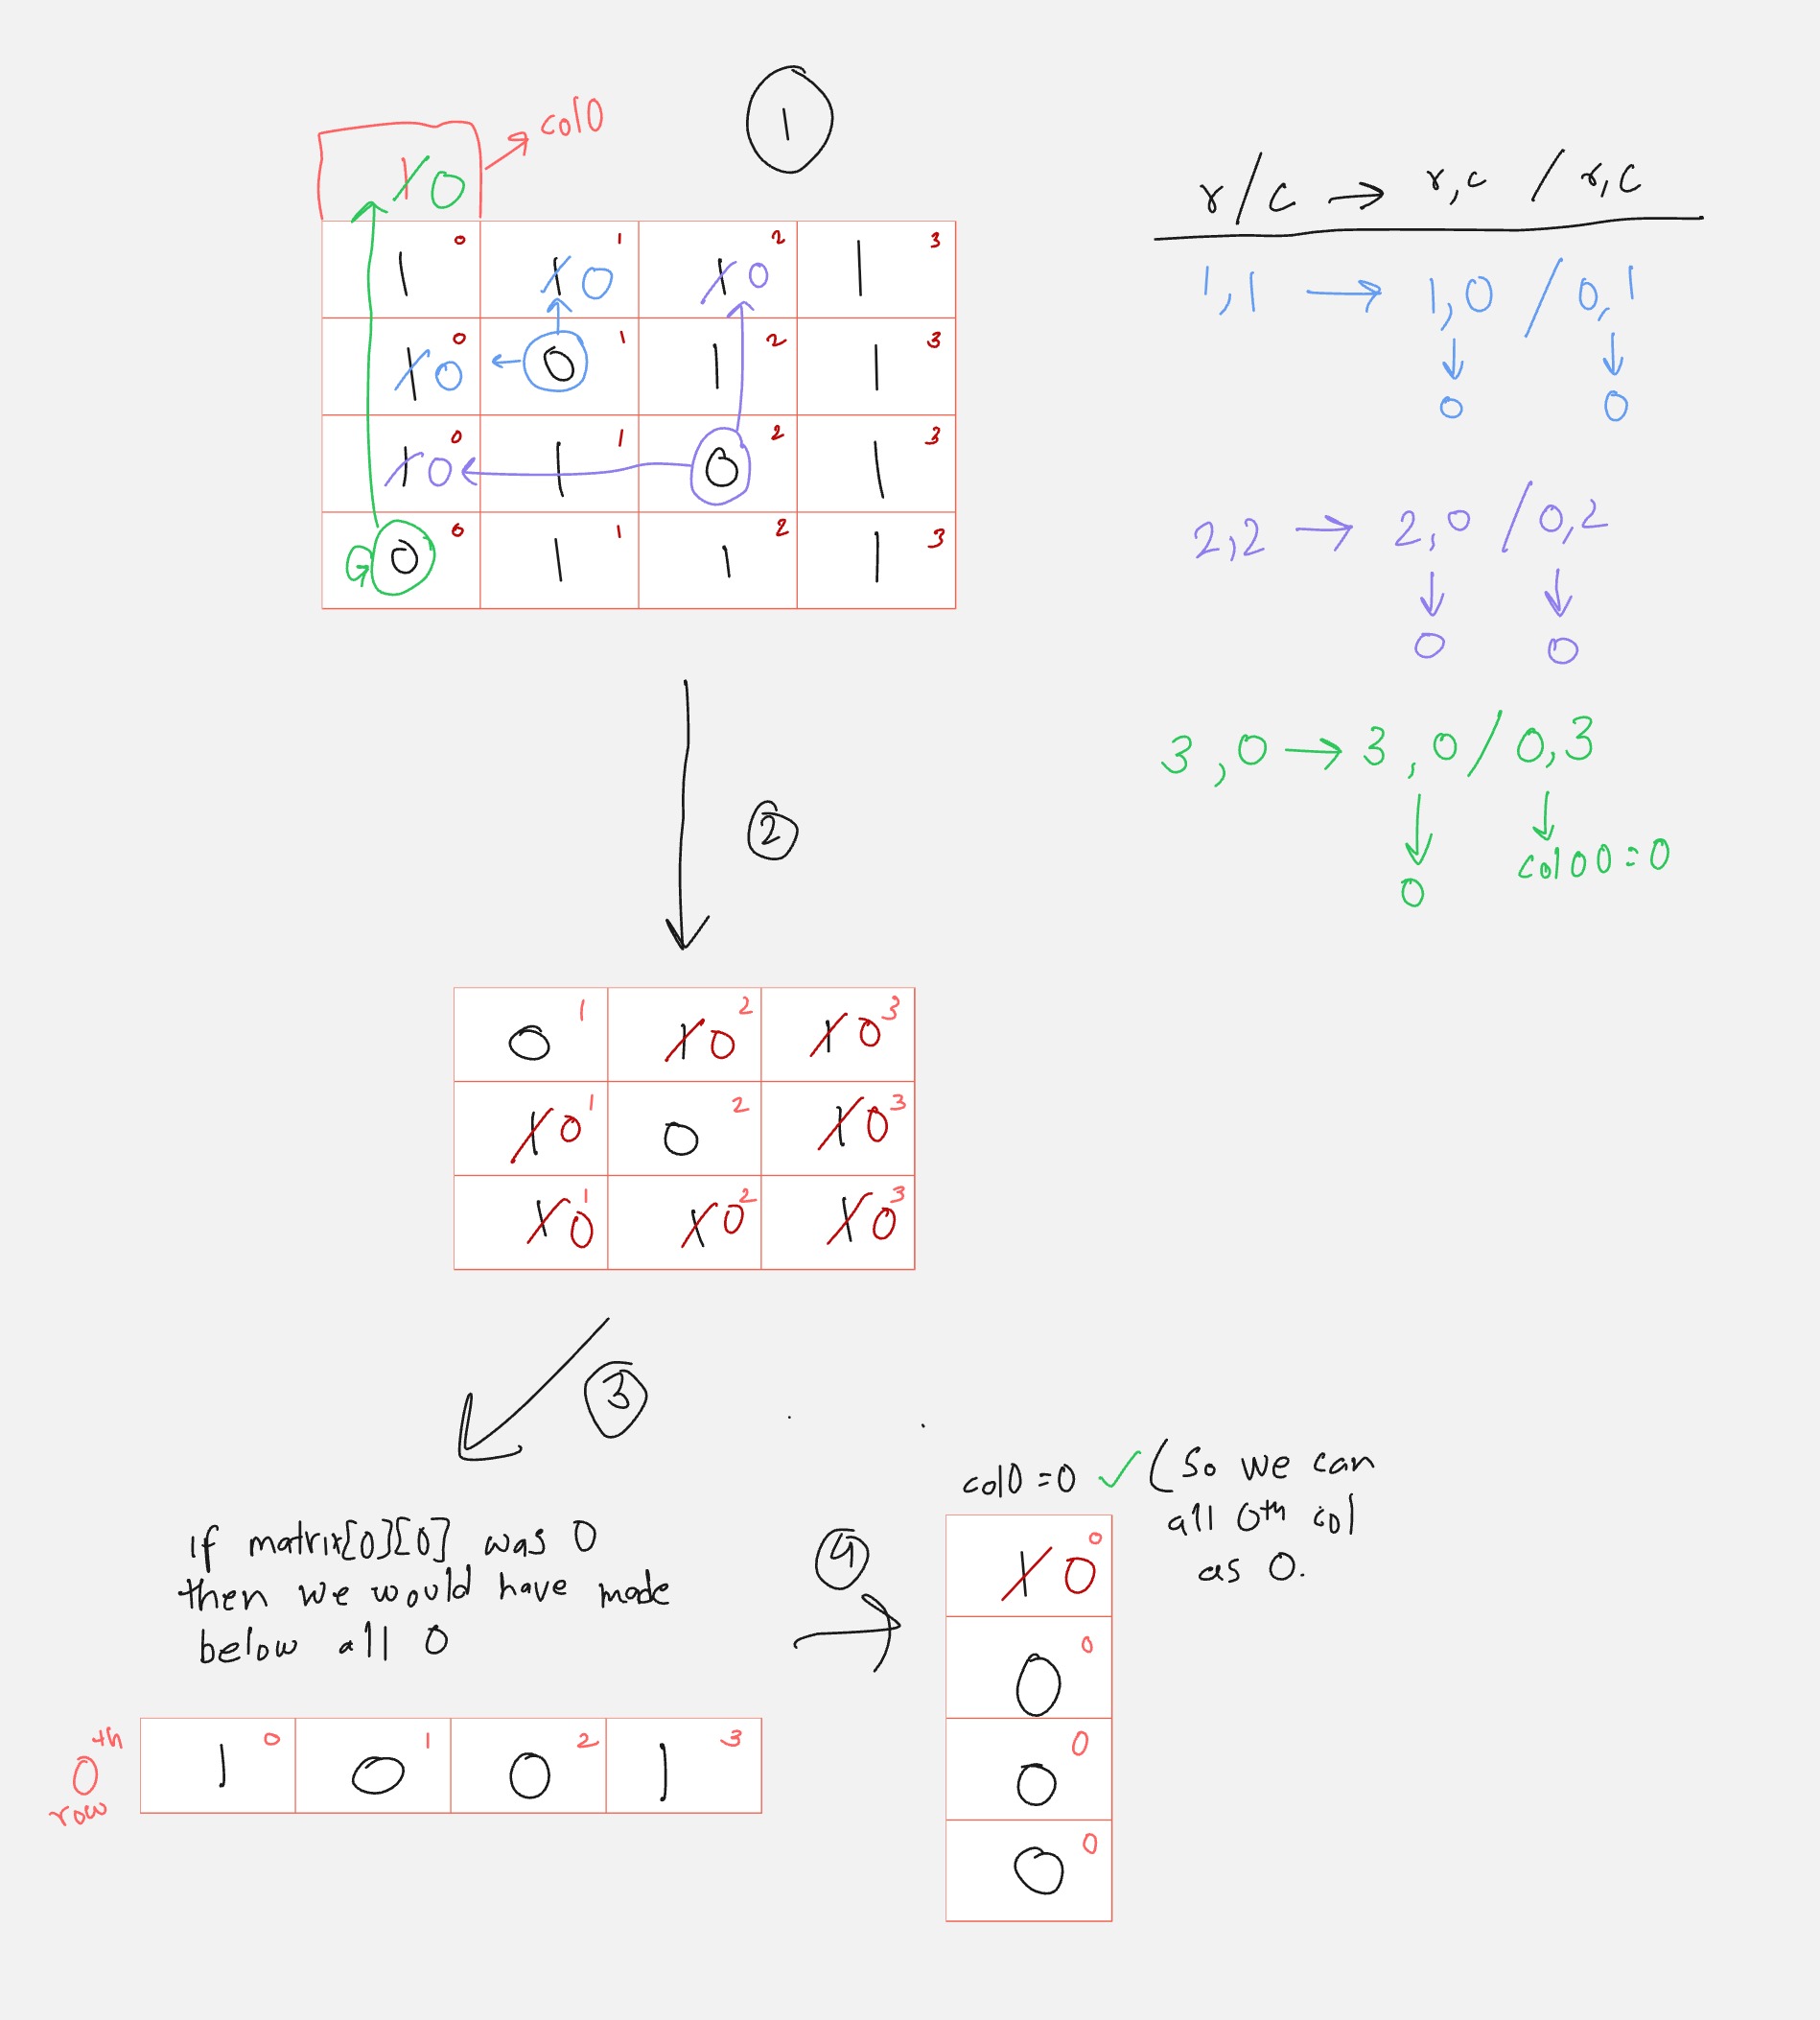 1
col0
1 0
r/c → r,c / r,c
1 0 1 0 1 1 0 2 1 3
1 0 0 0 1 1 2 1 3
1 0 0 1 1 0 2 1 3
0 0 1 1 1 2 1 3
1,1 → 1,0 / 0,1
0 0
2,2 → 2,0 / 0,2
0 0
3,0 → 3,0 / 0,3
0 col00=0
2
0 1 1 0 2 1 0 3
1 0 1 0 2 1 0 3
1 0 1 1 0 2 1 0 3
3
if matrix[0][0] was 0
then we would have made
below all 0
0th
row
1 0 0 1 0 2 1 3
4
col0=0 ✓ (So we can
all 0th col
as 0.
1 0 0
0 0
0 0
0 0